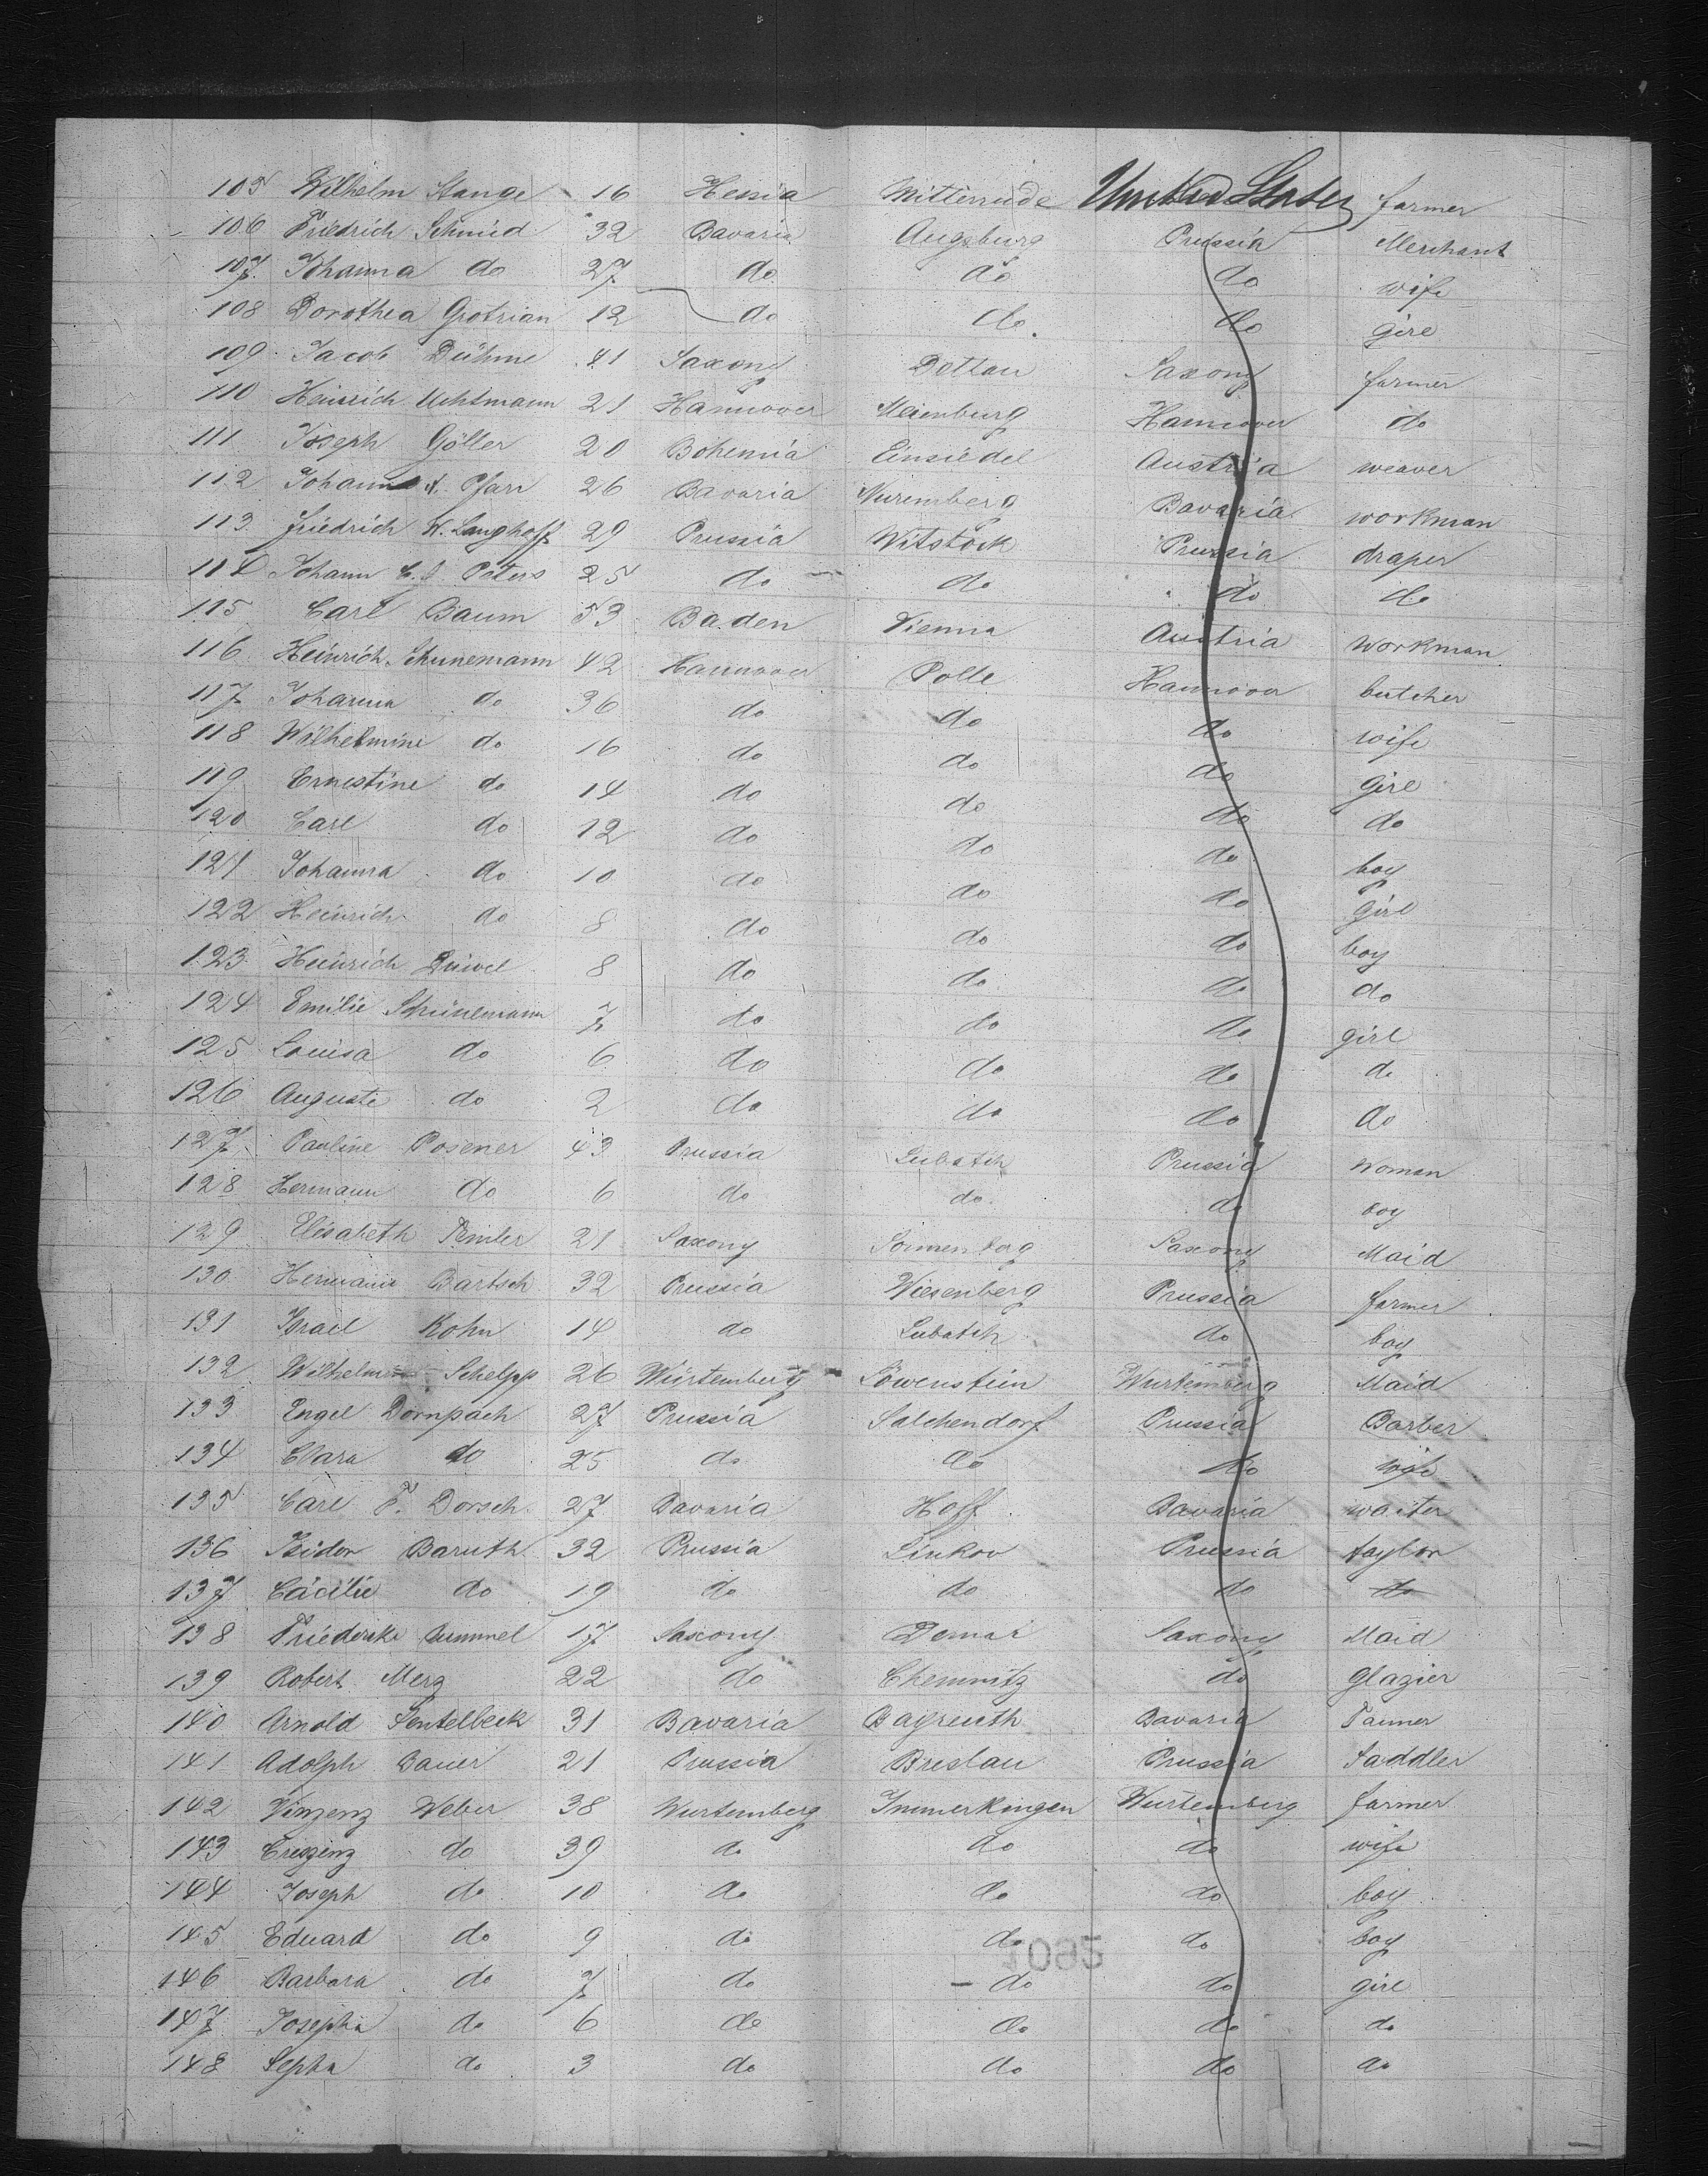 105 Wilhelm Stange 16 Hessia Mitterrude United States farmer
106 Friedrich Schmid 32 Bavaria Augsburg Prussia Merchant
107. Johanna do 27 do do do wife
108 Dorothea Grotrian 12 do do. do girl
109 Jacob Dühme 41 Saxony Dottau Saxony farmer
110 Heinrich Uchtmann 21 Hannover Meienburg Hannover do
111 Joseph Göller 20 Bohemia Einsiedel Austria weaver
112 Johann A. Pfarr 26 Bavaria Nuremberg Bavaria workman
113 Friedrich W. Langhoff 29 Prussia Witstock Prussia draper
114 Johann C. J. Peters 25 do do do do
115 Carl Baum 53 Baden Vienna Austria workman
116 Heinrich Schunemann 42 Hannover Polle Hannover butcher
117 Johanna do 36 do do do wife
118 Wilhelmine do 16 do do do girl
119 Ernestine do 14 do do do do
120 Carl do 12 do do do boy
121 Johanna do 10 do do do girl
122 Heinrich do 8 do do do boy
123 Heinrich Düwel 8 do do do do
124 Emilie Schünemann 7 do do do girl
125 Louisa do 6 do do do do
126 Auguste do 2 do do do do
127 Pauline Posener 43 Prussia Lubatch Prussia Woman
128 Hermann do 6 do do do boy
129 Elisabeth 21 Saxony Sonnenberg Saxony Maid
130 Hermann Bartsch 32 Prussia Wiesenberg Prussia farmer
131 Israel Kohn 14 do Lubatch do boy
132 Schelpp 26 Würtemberg Löwenstein Wurtemberg Maid
133 Engel Dornpach 27 Prussia Salchendorf Prussia Barber
134 Clara do 25 do do do wife
135 Carl F. Dorsch 27 Bavaria Hoff Bavaria waiter
136 Isidor Baruth 32 Prussia Linkov Prussia taylor
137 Cäcilie do 19 do do do do
138 Friederike Bummel 17 Saxony Demar Saxony Maid
139 Robert Merz 22 do Chemnitz do Glazier
140 Arnold Sentelbeck 31 Bavaria Bayreuth Bavaria Tanner
141 Adolph Bauer 21 Prussia Breslau Prussia Saddler
142 Vinzenz Weber 38 Wurtemberg Immerkingen Wurtemberg farmer
143 Creszinz do 39 do do do wife
144 Joseph do 10 do do do boy
145 Eduard do 9 do do do boy
146 Barbara do 7 do do do girl
147 Josepha do 6 do do do do
148 Sepha do 3 do do do do